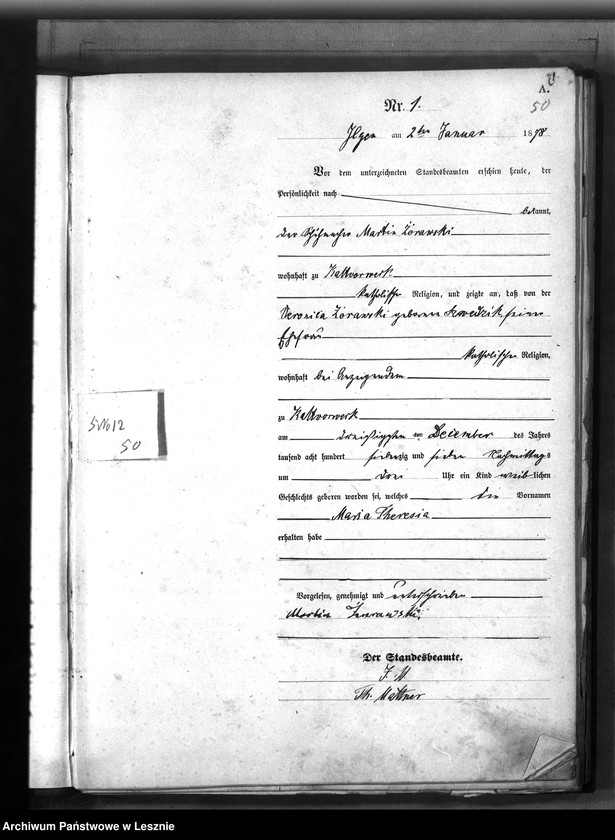 A.
50
Nr. 1.
Ilgen am 2ten Januar 1878
Vor dem unterzeichneten Standesbeamten erschien heute, der
Persönlichkeit nach
bekannt,
der Martin Zórawski
wohnhaft zu Kaltvorwerk
katholischer Religion, und zeigte an, daß von der
Veronica Zórawski geborene seiner
Ehefrau
katholischer Religion,
wohnhaft bei Anzeigendem
zu Kaltvorwerk
am dreißigsten Dezember des Jahres
tausend acht hundert siebenzig und sieben Nachmittags
um drei Uhr ein Kind weiblichen
Geschlechts geboren worden sei, welches die Vornamen
Maria Theresia
erhalten habe
Vorgelesen, genehmigt und unterschrieben
Martin Zurawski
Der Standesbeamte.
J. V.
Th. Mattner
50
Archiwum Państwowe w Lesznie